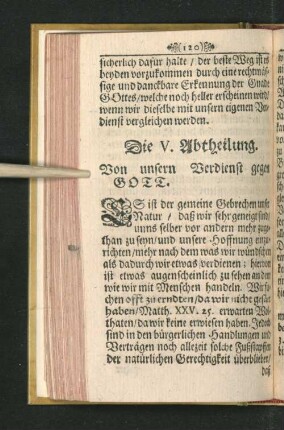 (120)
sicherlich dafür halte / der beste Weg ist es
beyden vorzukommen durch eine rechtmäs-
sige und danckbare Erkennung der Gnade
GOttes / welche noch heller erscheinen wird /
wenn wir dieselbe mit unsern eigenen Ver-
dienst vergleichen werden.
Die V. Abtheilung.
Von unsern Verdienst gegen
GOTT.
ES ist der gemeine Gebrechen unser
Natur / daß wir sehr geneigt sind /
uns selber vor andern mehr zuge-
than zu seyn / und unsere Hoffnung einzu-
richten / mehr nach dem was wir wündschen
als dadurch wir etwas verdienen: hiervon
ist etwas augenscheinlich zu sehen an dem
wie wir mit Menschen handeln. Wir su-
chen offt zu erndten / da wir nicht gesäet
haben / Matth. XXV. 25. erwarten Wol-
thaten / da wir keine erwiesen haben. Jedoch
sind in den bürgerlichen Handlungen und
Verträgen noch allezeit solche Fußstapffen
der natürlichen Gerechtigkeit überblieben /
daß